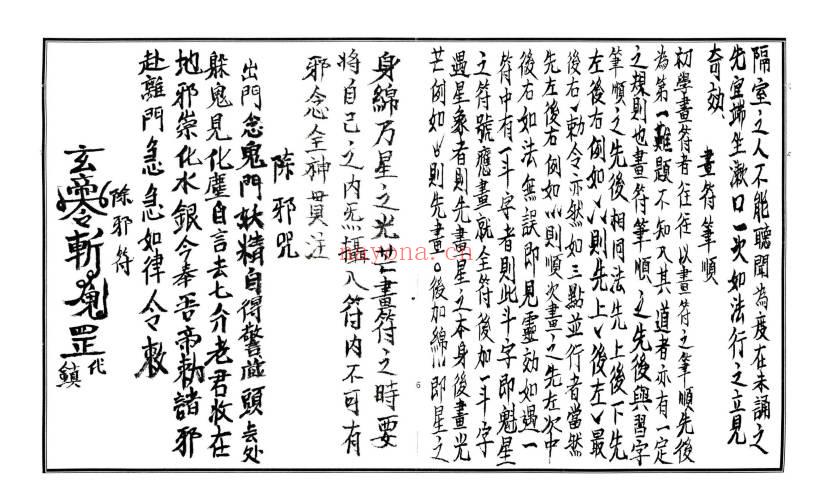 隔室之人不能聽聞為度在未誦之
先宜端坐漱口一次如法行之立見
奇効
畫符筆順
初學畫符者往往以畫符之筆順先後
為第一難題不知入其道者亦有一定
之規則也畫符筆順之先後與習字
筆順之先後相同法先上後下先
左後右例如則先上後左最
後右敕令亦然如三點並行者當然
先左後右例如則順次畫之先左次中
後右如法無誤即見靈効如遇一
符中有一斗字者則此斗字即魁星
之符號應畫就全符後加一斗字
遇星象者則先畫星之本身後畫光
芒例如則先畫〇後加綿即星之
6
身綿乃星之光芒畫符之時要
將自己之內炁攝入符內不可有
邪念全神貫注
除邪咒
出門念鬼門妖精自得警藏頭去处
躲鬼見化塵自言去七分老君收在
地邪崇化水銀今奉吾帝勅諸邪
赴離門急急如律令敕
除邪符
斬鬼罡
鎮
nayona.cn